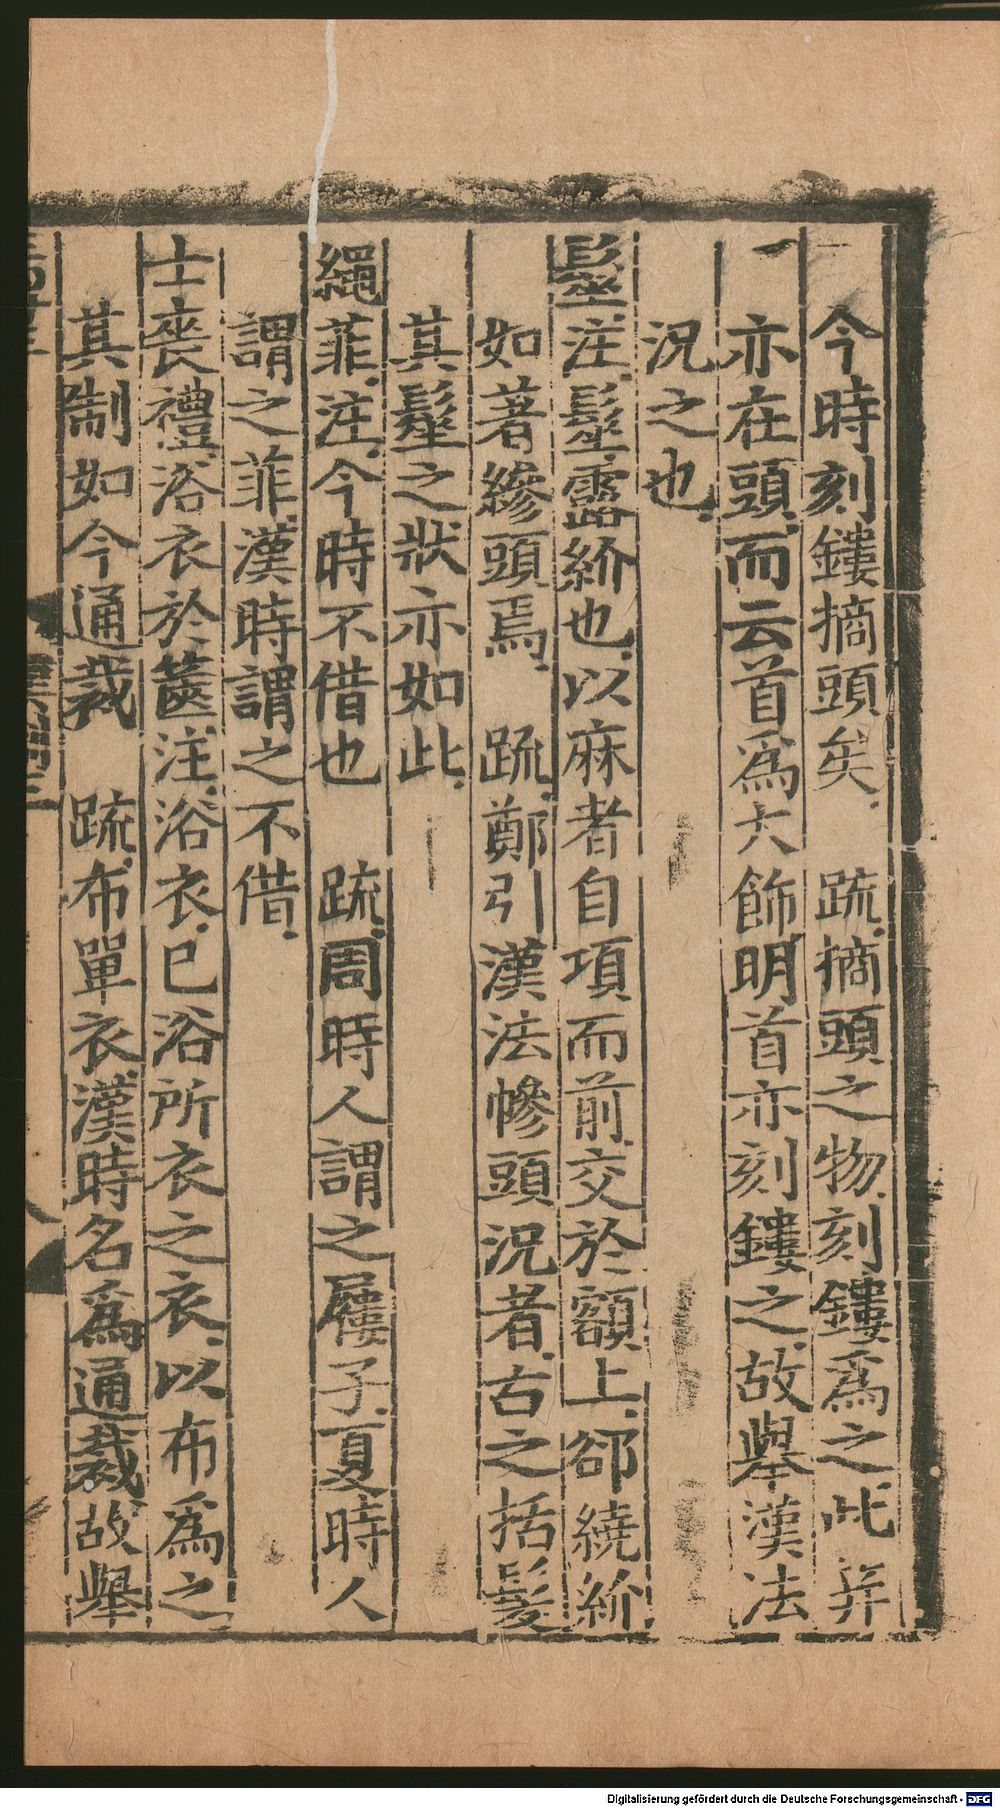 今時刻鏤摘頭矣 疏摘頭之物刻鏤爲之此笄
亦在頭而云首爲大飾明首亦刻鏤之故舉漢法
況之也
髽注髽露紒也以麻者自項而前交於額上郤繞紒
如著縿頭焉 疏鄭引漢法幓頭況者古之括髮
其髽之狀亦如此
繩菲注今時不借也 疏周時人謂之屨子夏時人
謂之菲漢時謂之不借
士喪禮浴衣於篋注浴衣已浴所衣之衣以布爲之
其制如今通裁 疏布單衣漢時名爲通裁故舉
Digitalisierung gefördert durch die Deutsche Forschungsgemeinschaft - DFG